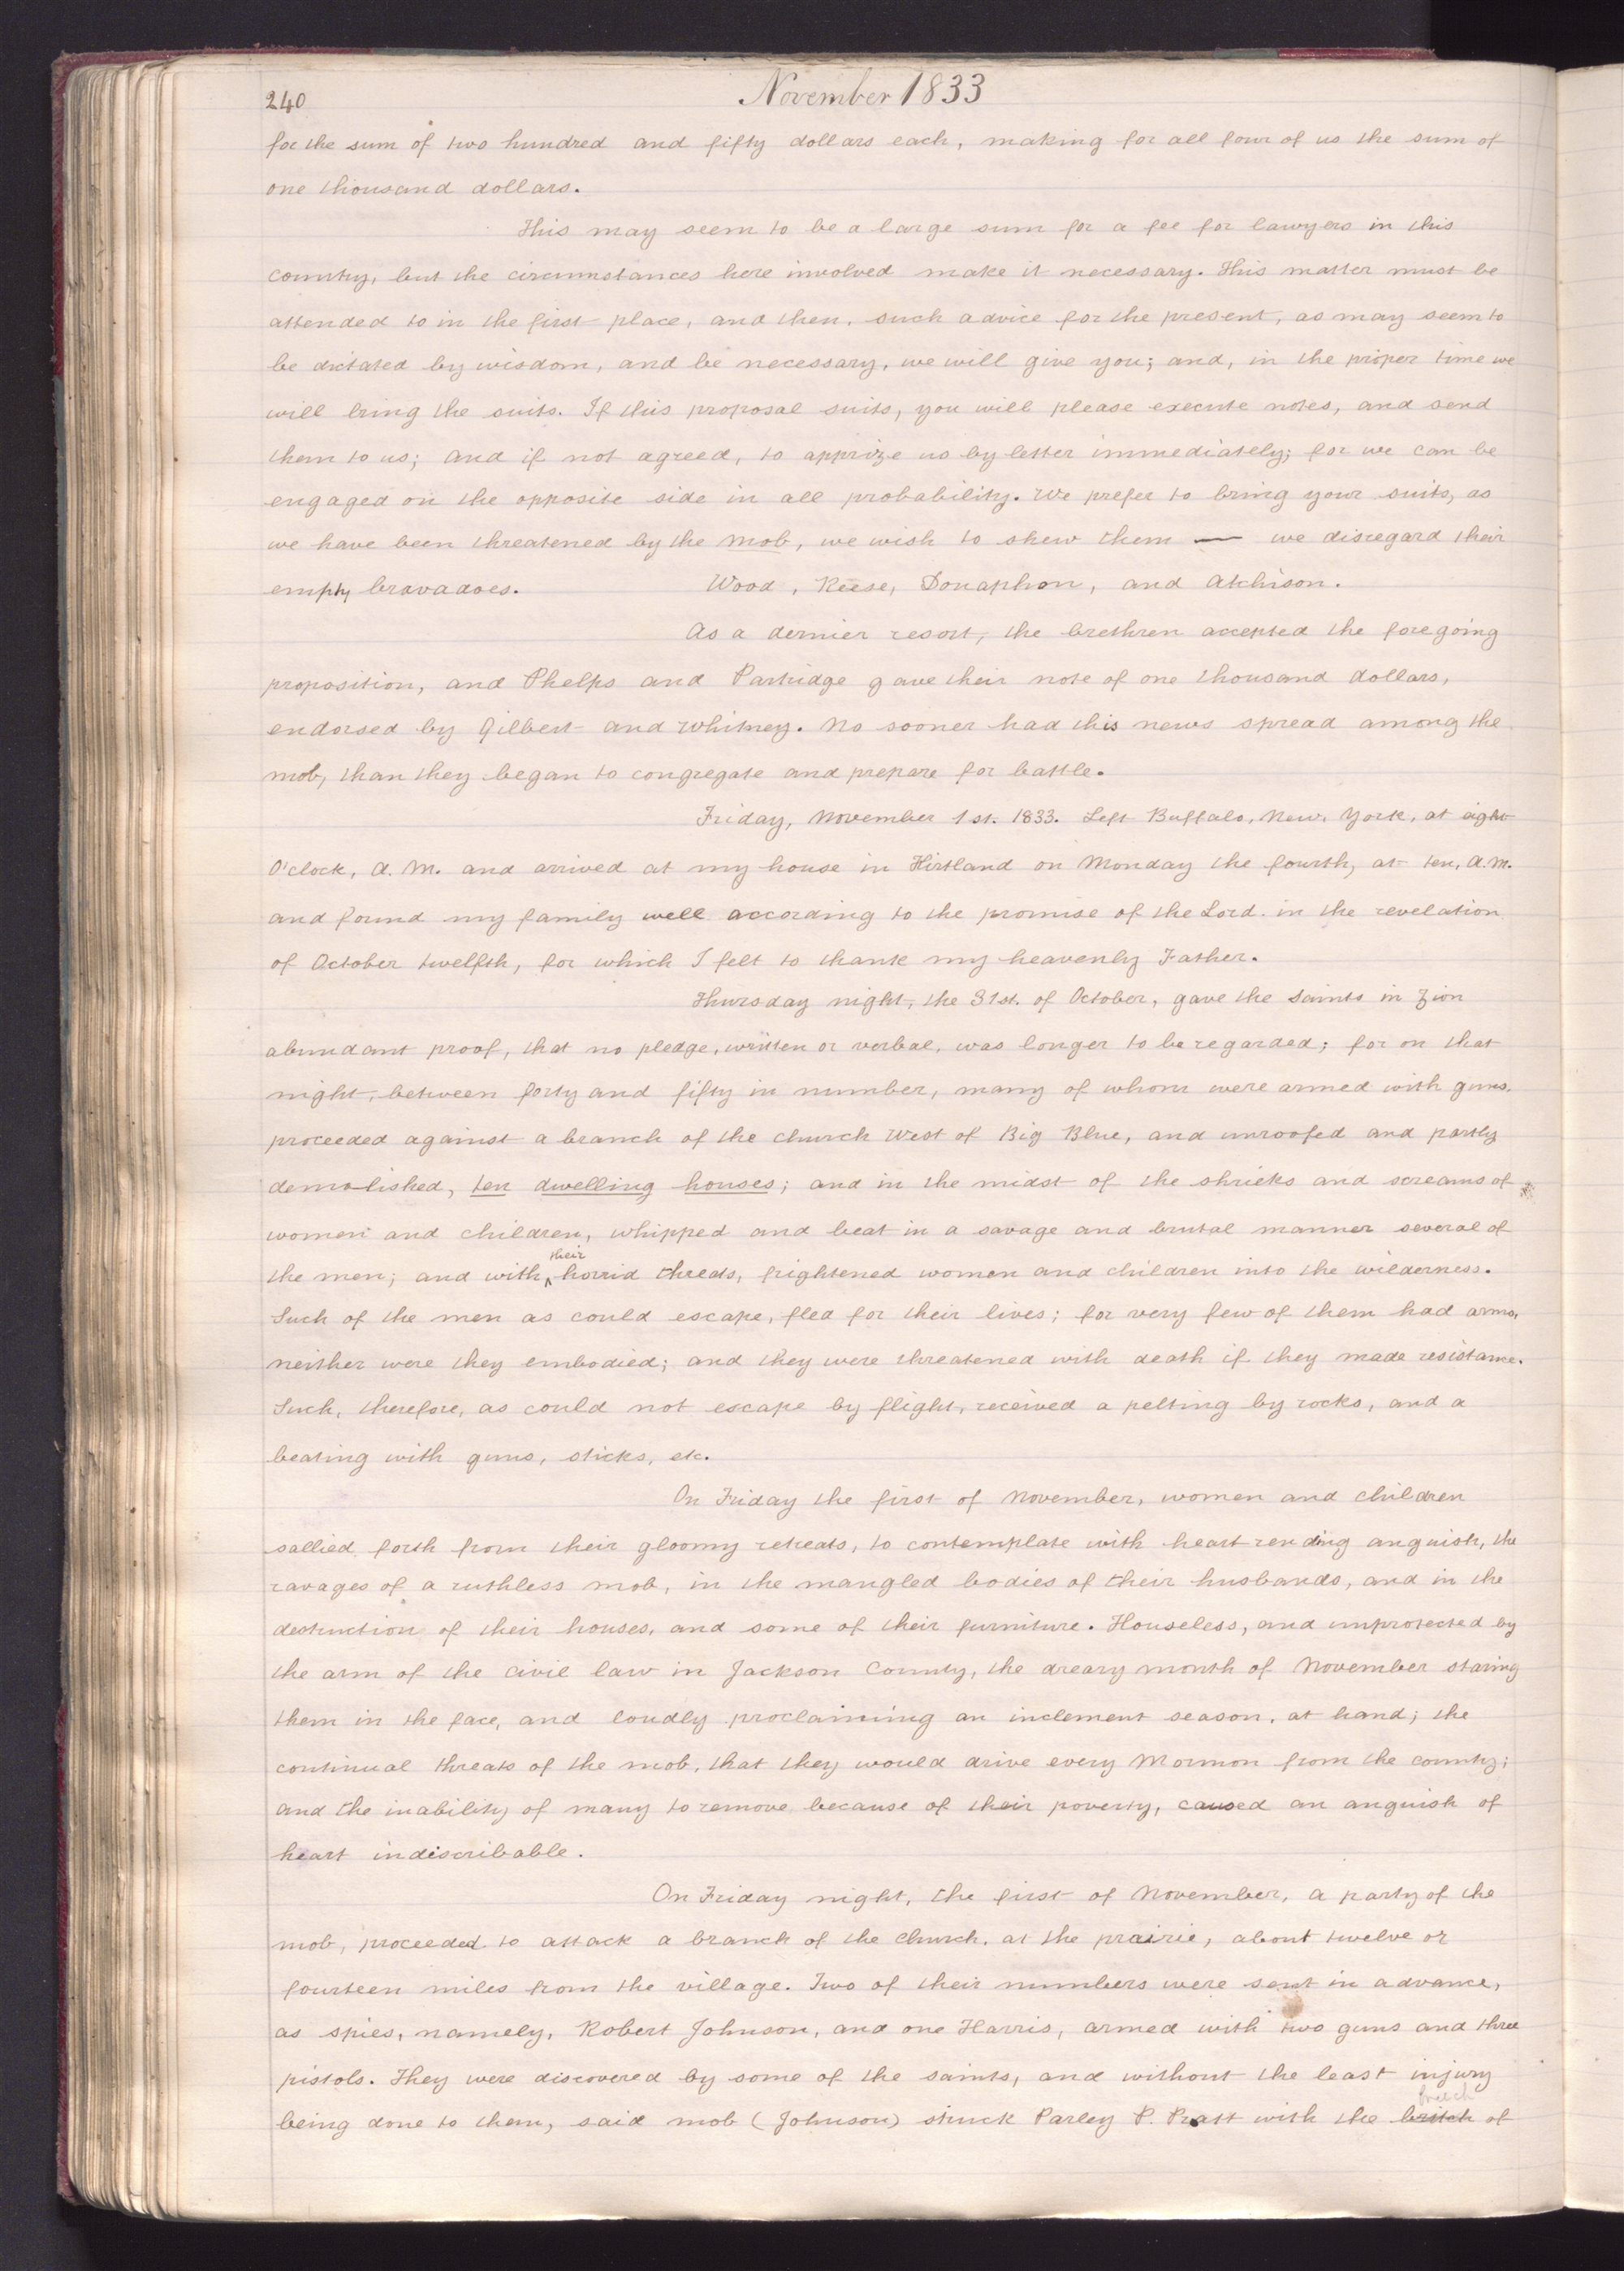 240
November 1833
for the sum of two hundred and fifty dollars each, making for all four of us the sum of
one thousand dollars.
This may seem to be a large sum for a fee for lawyers in this
country, but the circumstances here involved make it necessary. This matter must be
attended to in the first place, and then, such advice for the present, as may seem to
be dictated by wisdom, and be necessary, we will give you; and, in the proper time we
will bring the suits. If this proposal suits, you will please execute notes, and send
them to us; and if not agreed, to apprize us by letter immediately; for we can be
engaged on the opposite side in all probability. We prefer to bring your suits, as
we have been threatened by the mob, we wish to shew them — we disregard their
empty bravadoes. Wood, Reese, Donaphon, and Atchison.
As a dernier resort, the brethren accepted the foregoing
proposition, and Phelps and Partridge gave their note of one thousand dollars,
endorsed by Gilbert and Whitney. No sooner had this news spread among the
mob, than they began to congregate and prepare for battle.
Friday, November 1st. 1833. Left Buffalo, New York, at eight
O'clock, A. M. and arrived at my house in Hirtland on Monday the fourth, at ten, A.M.
and found my family well according to the promise of the Lord. in the revelation
of October twelfth, for which I felt to thank my heavenly Father.
Thursday night, the 31st. of October, gave the Saints in Zion
abundant proof, that no pledge, written or verbal, was longer to be regarded; for on that
night, between forty and fifty in number, many of whom were armed with guns,
proceeded against a branch of the church West of Big Blue, and unroofed and partly
demolished, ten dwelling houses; and in the midst of the shrieks and screams of
women and children, whipped and beat in a savage and brutal manner several of
their
the men; and with horrid threats, frightened women and children into the wilderness.
Such of the men as could escape, fled for their lives; for very few of them had arms,
neither were they embodied; and they were threatened with death if they made resistance.
Such, therefore, as could not escape by flight, received a pelting by rocks, and a
beating with guns, sticks, etc.
On Friday the first of November, women and children
sallied forth from their gloomy retreats, to contemplate with heart rending anguish, the
ravages of a ruthless mob, in the mangled bodies of their husbands, and in the
destruction of their houses, and some of their furniture. Houseless, and unprotected by
the arm of the civil law in Jackson County, the dreary month of November staring
them in the face, and loudly proclaiming an inclement season, at hand; the
continual threats of the mob, that they would drive every Mormon from the county;
and the inability of many to remove because of their poverty, caused an anguish of
heart indiscribable.
On Friday night, the first of November, a party of the
mob, proceeded to attack a branch of the church, at the prairie, about twelve or
fourteen miles from the village. Two of their numbers were sent in advance,
as spies, namely, Robert Johnson, and one Harris, armed with two guns and three
pistols. They were discovered by some of the saints, and without the least injury
breech
being done to them, said mob (Johnson) struck Parley P. Pratt with the britch of